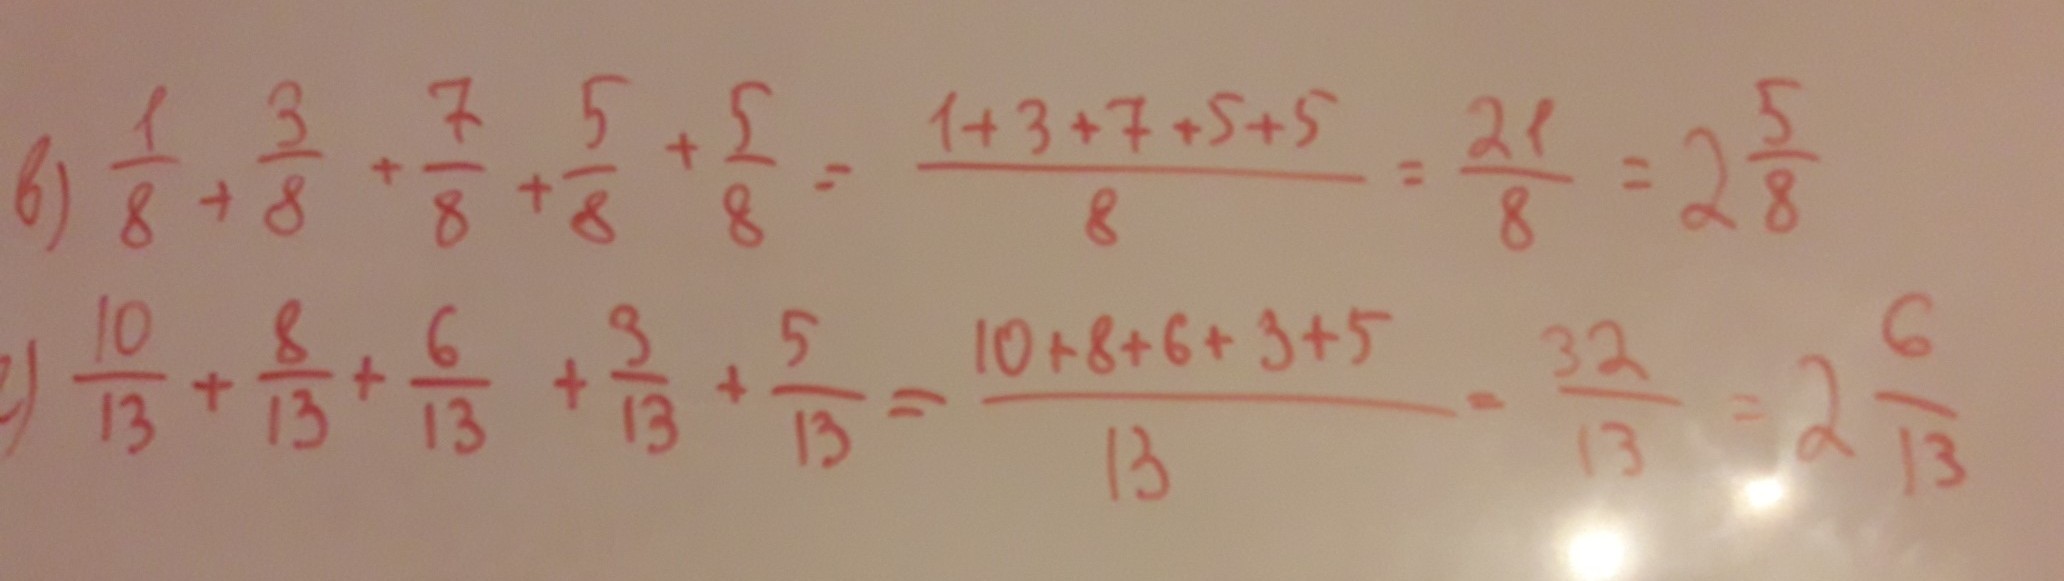 в) 1/8 + 3/8 + 7/8 + 5/8 + 5/8 = (1+3+7+5+5)/8 = 21/8 = 2 5/8
г) 10/13 + 8/13 + 6/13 + 3/13 + 5/13 = (10+8+6+3+5)/13 = 32/13 = 2 6/13